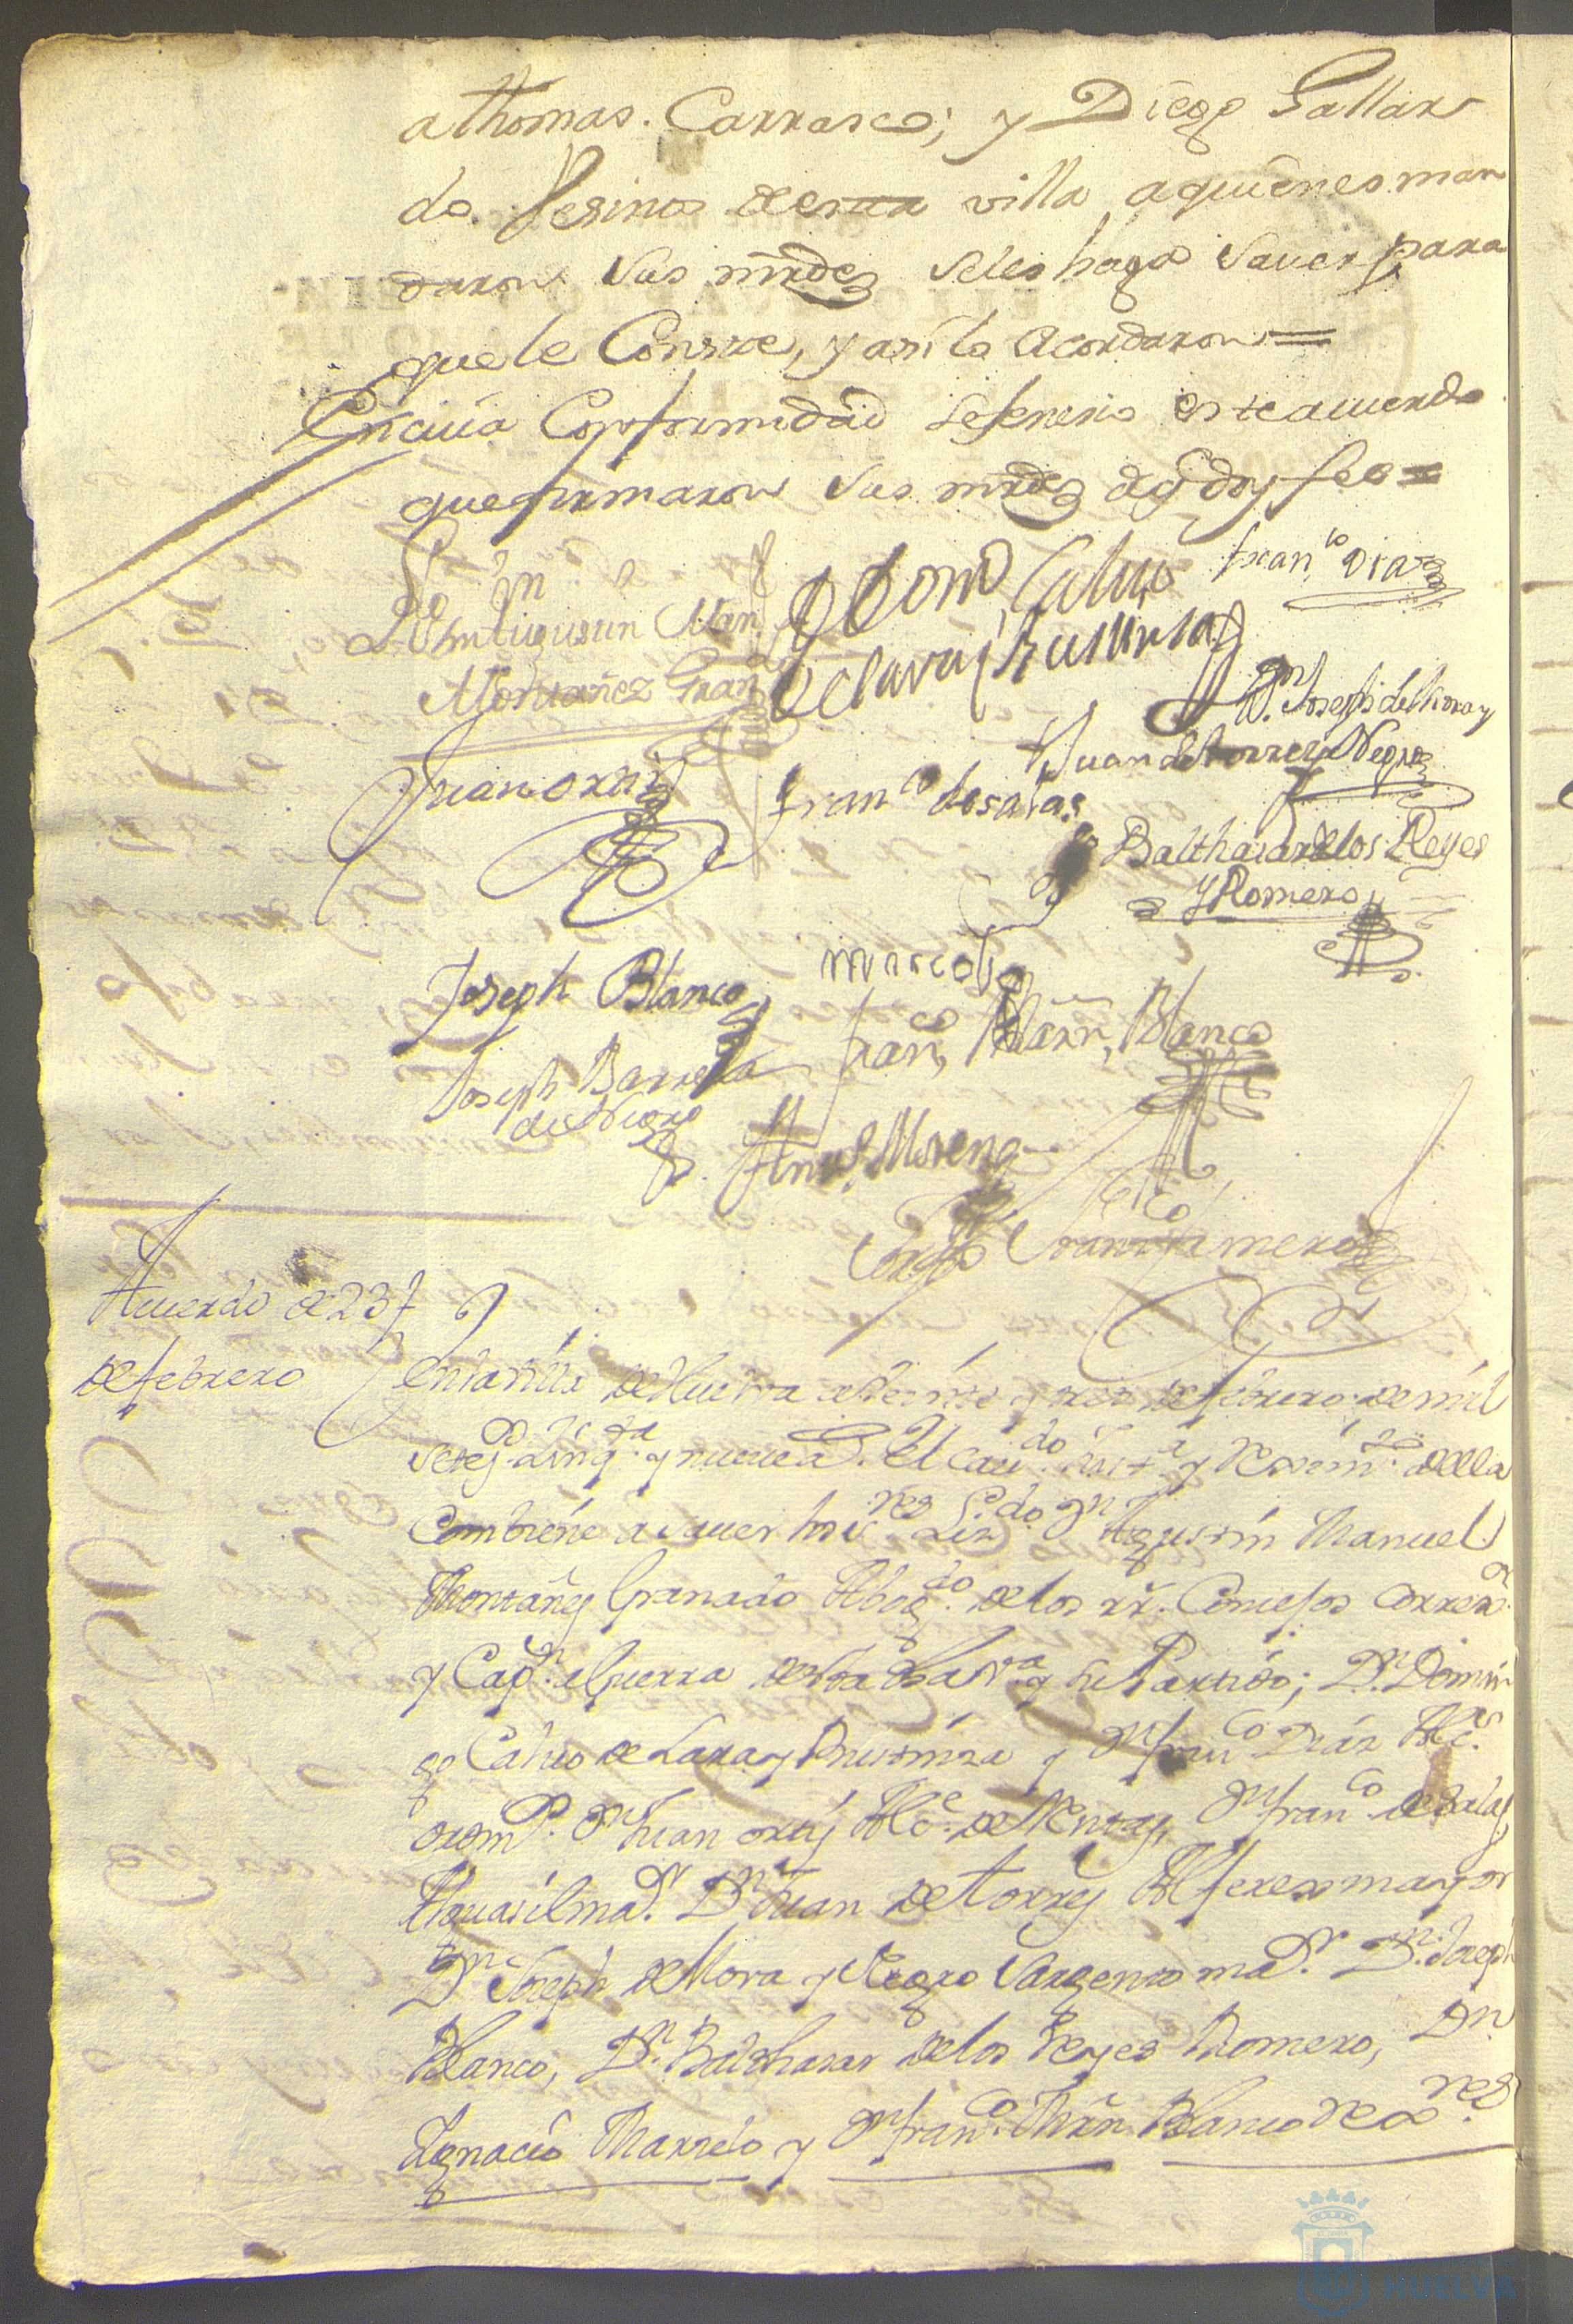 a thomas. Carrasco; y Diego Gallar
do. Vesinos de esta villa aquiénes man
daron sus mrdes seles haga saver para
quele Conste, y asi lo acordaron =
En cuia Conformidad sefenesio este acuerdo
que firmaron sus mrdes de q doy fee =
Ldo Dn Augustin Man.l
Montañez Granado
Domo Calvo
de Lara y Buitrón
Franco Diaz
Dn Joseph de Mora y
Negro
Juan de Torres
Juan ortiz
Franco de salas
Balthasar de los Reyes
y Romero
Joseph Blanco
marcos
Fran.co Marn. Blanco
Joseph Barreda
Moreno
Fran.co
Acuerdo de 23
de febrero
En la villa de Huelva a Veinte y tres de febrero de mil
setes. Cinqta. y nueve a.s El Cavdo. Justa. y Reximto. della
Combiéne a saver los Sres. Lizdo. Dn Agustin Manuel
Montañez Granado Abogdo. de los RRs. Consejos Correxor.
y Capn. a Guerra desta dha va. y su Partido; Dn. Domin
go Calvo de Lara y Buitrón y Dn franco Diáz Alcs.
ordins. Dn Juan ortiz Alce. de Rentas, Dn franco. de Salas
Alguasil mar. Dn Juan de torres Alferes mayor
Dn Joseph de Mora y Negro Sargento mar. Dn. Joseph
Blanco, Dn. Balthasar de los Reyes Romero, Dn
Ygnacio Marrelo y Dn franco. Mrn. Blanco Rexres.
HUELVA